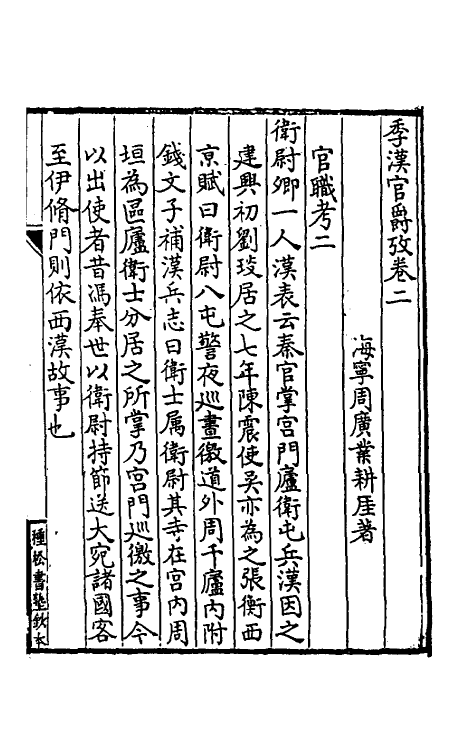 季漢官爵攷卷二
海寧周廣業耕厓著
官職考二
衛尉卿一人漢表云秦官掌宮門廬衛屯兵漢因之
建興初劉琰居之七年陳震使吳亦為之張衡西
京賦曰衛尉八屯警夜巡晝徼道外周千廬內附
錢文子補漢兵志曰衛士属衛尉其寺在宮內周
垣為區廬衛士分居之所掌乃宮門巡徼之事今
以出使者昔馮奉世以衛尉持節送大宛諸國客
至伊脩門則依西漢故事也
種松書塾鈔本